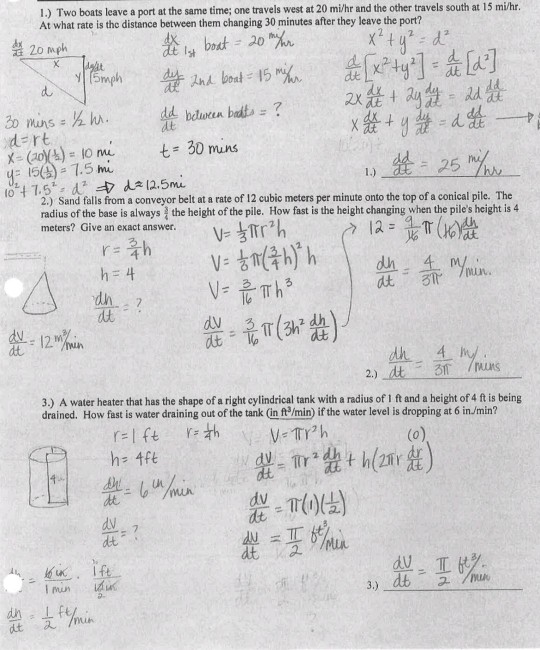 1.) Two boats leave a port at the same time; one travels west at 20 mi/hr and the other travels south at 15 mi/hr.
At what rate is the distance between them changing 30 minutes after they leave the port?
dx/dt 20 mph
x
y
dy/dt
15mph
d
30 mins = 1/2 hr.
d=rt
x=(20)(1/2) = 10 mi
y= 15(1/2) = 7.5 mi
10² + 7.5² = d² ⇒ d≈12.5mi
dx/dt 1st boat = 20 mi/hr
dy/dt 2nd boat = 15 mi/hr
dd/dt between boats = ?
t = 30 mins
x² + y² = d²
d/dt [x²+y²] = d/dt [d²]
2x dx/dt + 2y dy/dt = 2d dd/dt
x dx/dt + y dy/dt = d dd/dt →
1.) dd/dt = 25 mi/hr
2.) Sand falls from a conveyor belt at a rate of 12 cubic meters per minute onto the top of a conical pile. The
radius of the base is always 3/4 the height of the pile. How fast is the height changing when the pile's height is 4
meters? Give an exact answer.
r = 3/4 h
h = 4
dh/dt = ?
dV/dt = 12 m³/min
V = 1/3 πr²h
V = 1/3 π(3/4 h)² h
V = 3/16 πh³
dV/dt = 3/16 π(3h² dh/dt)
→ 12 = 9/16 π(16) dh/dt
dh/dt = 4/3π m/min.
2.) dh/dt = 4/3π m/mins
3.) A water heater that has the shape of a right cylindrical tank with a radius of 1 ft and a height of 4 ft is being
drained. How fast is water draining out of the tank (in ft³/min) if the water level is dropping at 6 in./min?
4
r=1 ft r= 1/4 h
h= 4ft
dh/dt = 6 in/min
dV/dt = ?
V= πr²h
(0)
dV/dt = πr² dh/dt + h(2πr dr/dt)
dV/dt = π(1)(1/2)
dV/dt = π/2 ft³/min
= 6 in/1 min · 1 ft/12 in
2
dh/dt = 1/2 ft/min
3.) dV/dt = π/2 ft³/min